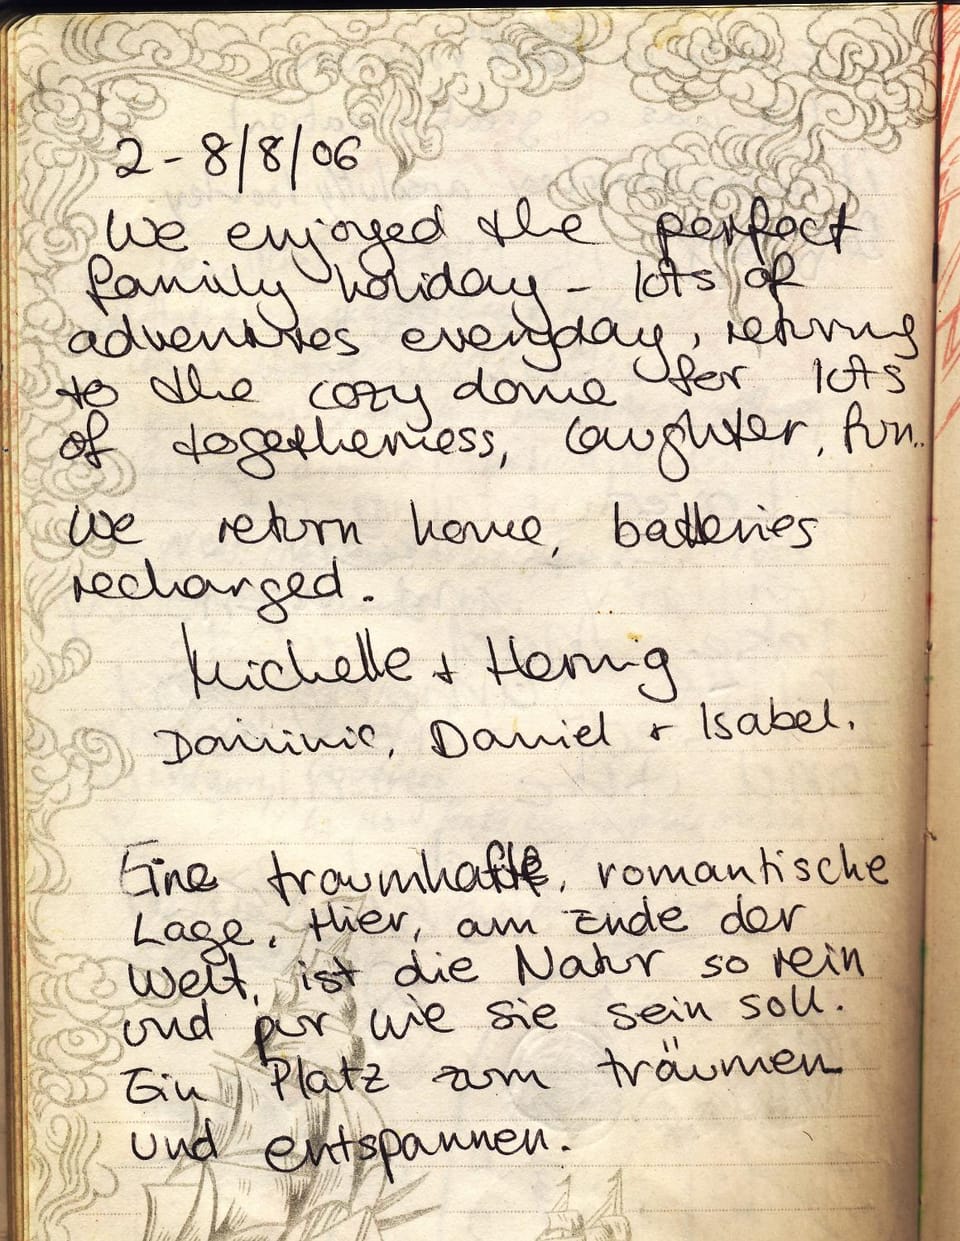 2 - 8/8/06
We enjoyed the perfect
family holiday - lots of
adventures everyday, returning
to the cozy dome for lots
of togetherness, laughter, fun..
We return home, batteries
recharged.
Michelle +
Dominic, Daniel + Isabel.
Eine traumhafte, romantische
Lage. Hier, am Ende der
Welt, ist die Natur so rein
und pur wie sie sein soll.
Ein Platz zum träumen
und entspannen.